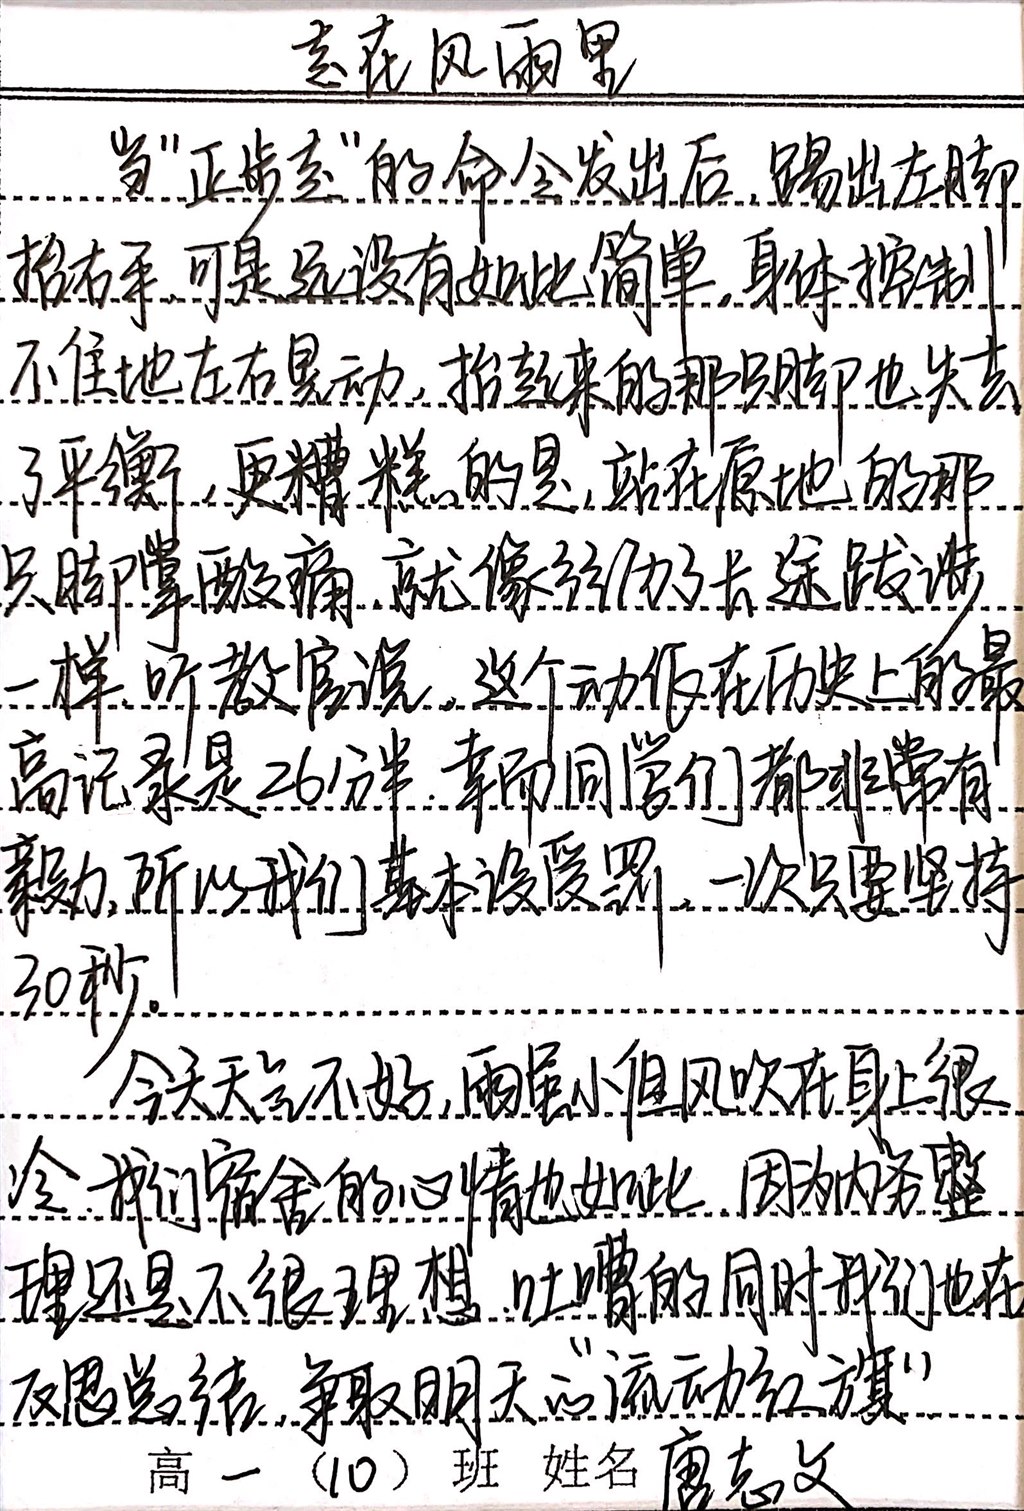 走在风雨里
当"正步走"的命令发出后,踢出左脚
抬右手,可是远没有如此简单,身体控制
不住地左右晃动,抬起来的那只脚也失去
了平衡,更糟糕的是,站在原地的那
只脚掌酸痛,就像经历了长途跋涉
一样,听教官说,这个动作在历史上的最
高记录是26分半.幸而同学们都非常有
毅力,所以我们基本没受罚,一次只要坚持
30秒。
今天天气不好,雨虽小但风吹在身上很
冷.我们宿舍的心情也如此,因为内务整
理还是不很理想,吐嘈的同时我们也在
反思总结,争取明天的"流动红旗"
高一(10)班 姓名 唐志文